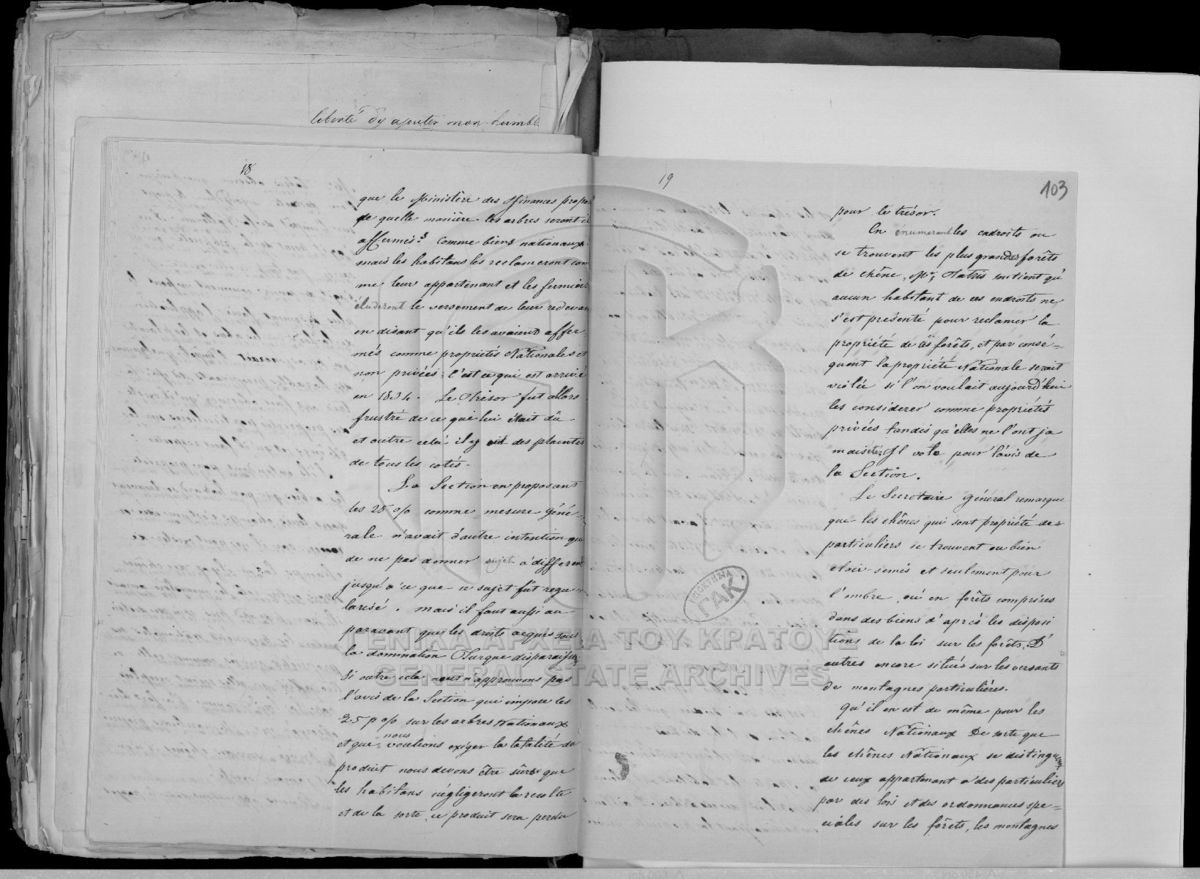 liberté d'y ajouter mon humble
18
que le Ministère des Finances propo
de quelle manière les arbres seront i
affermés? Comme biens nationaux
mais les habitans les reclameront com
me leur appartenant et les fermiers
éluderont le versement de leur redevan
en disant qu'ils les avaient affer
més comme propriétés Nationales et
non privées; c'est ce qui est arrivé
en 1834. Le Trésor fut allors
frustré de ce que lui était dû
et outre celà il y eut des plaintes
de tous les cotés.
La Section en proposant
les 25 o/o comme mesure Géné
rale n'avait d'autre intention que
de ne pas donner sujet à différent
jusqu'à ce que ce sujet fût regu
larisé. mais il faut aussi au
paravant que les droits acquis sous
la domination Turque disparaissent
Si outre cela nous n'approuvons pas
l'avis de la Section qui impose les
25 p o/o sur les arbres Nationaux
et que nous voulions exiger la totalité du
produit nous devons être sûrs que
les habitans négligeront la recolte
et de la sorte, ce produit sera perdu
19
103
pour le trésor.
En énumerant les endroits ou
se trouvent les plus grandes forêts
de chêne, Mr; soutient qu'
aucun habitant de ces endroits ne
s'est présenté pour reclamer la
propriété de ces forêts, et par consé-
quent la propriété Nationale serait
violée si l'on voulait aujourd'hui
les considerer comme propriétés
privées tandis qu'elles ne l'ont ja
mais été; Il vote pour l'avis de
la Section.
Le Secretaire Général remarque
que les chênes qui sont propriété des
particuliers se trouvent ou bien
clair-semés et seulment pour
l'ombre, ou en forêts comprises
dans des biens d'après les disposi
tions de la loi sur les forêts, D'
autres encore situés sur les versants
de montagnes particulières.
qu'il en est de même pour les
chênes Nationaux De sorte que
les chênes Nationaux se distinguent
de ceux appartenant à des particuliers
par des lois et des ordonnances spe-
ciales sur les forêts, les montagnes
ΓΑΚ
ΓΕΝΙΚΑ ΑΡΧΕΙΑ ΤΟΥ ΚΡΑΤΟΥΣ
GENERAL STATE ARCHIVES